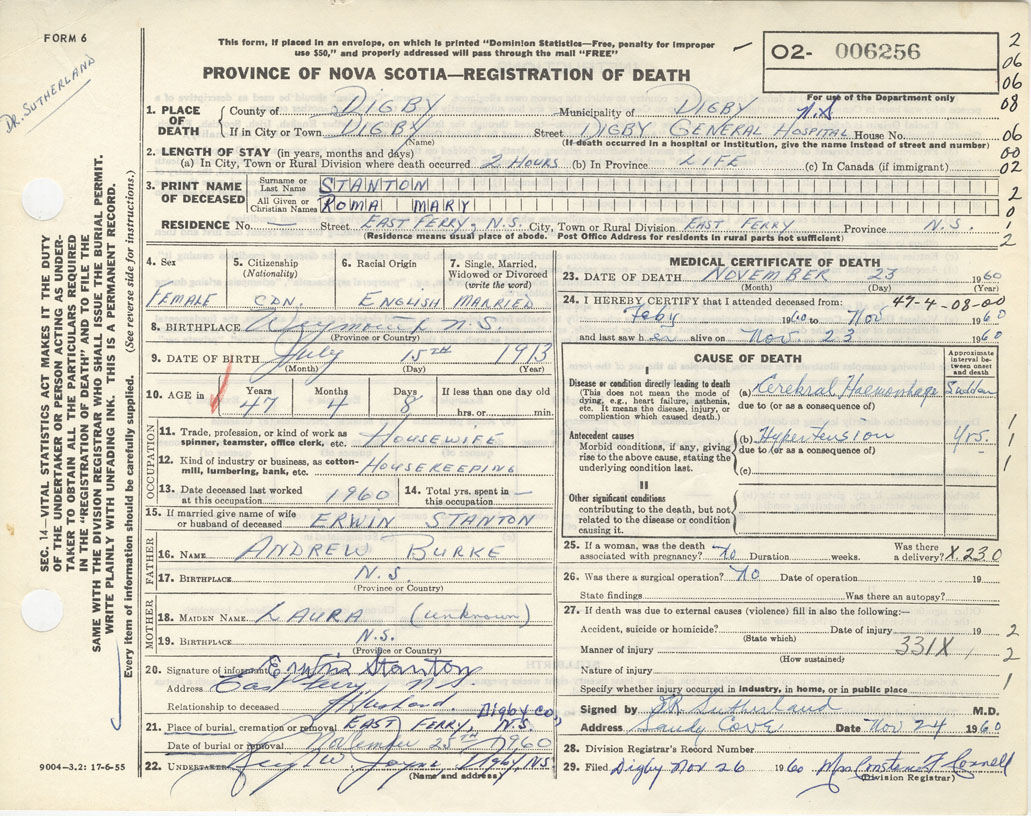 FORM 6
DR. SUTHERLAND
This form, if placed in an envelope, on which is printed "Dominion Statistics—Free, penalty for improper
use $50," and properly addressed will pass through the mail "FREE"
02- 006256
For use of the Department only
PROVINCE OF NOVA SCOTIA—REGISTRATION OF DEATH
2
06
06
08
06
00
02
2
0
1
2
1. PLACE OF DEATH County of DIGBY Municipality of DIGBY N.S
If in City or Town DIGBY Street DIGBY GENERAL HOSPITAL House No.
(Name) (If death occurred in a hospital or institution, give the name instead of street and number)
2. LENGTH OF STAY (in years, months and days)
(a) In City, Town or Rural Division where death occurred 2 HOURS (b) In Province LIFE (c) In Canada (if immigrant)
3. PRINT NAME OF DECEASED Surname or Last Name STANTON
All Given or Christian Names ROMA MARY
RESIDENCE No. — Street EAST FERRY, N.S. City, Town or Rural Division EAST FERRY Province N.S.
(Residence means usual place of abode. Post Office Address for residents in rural parts not sufficient)
4. Sex 5. Citizenship (Nationality) 6. Racial Origin 7. Single, Married, Widowed or Divorced (write the word)
FEMALE CDN. ENGLISH MARRIED
8. BIRTHPLACE Weymouth N.S.
(Province or Country)
9. DATE OF BIRTH July 15TH 1913
(Month) (Day) (Year)
10. AGE in Years Months Days If less than one day old
47 4 8 hrs. or min.
OCCUPATION
11. Trade, profession, or kind of work as spinner, teamster, office clerk, etc. HOUSEWIFE
12. Kind of industry or business, as cotton-mill, lumbering, bank, etc. HOUSEKEEPING
13. Date deceased last worked at this occupation 1960 14. Total yrs. spent in this occupation —
15. If married give name of wife or husband of deceased ERWIN STANTON
FATHER
16. NAME ANDREW BURKE
17. BIRTHPLACE N.S.
(Province or Country)
MOTHER
18. MAIDEN NAME LAURA (unknown)
19. BIRTHPLACE N.S.
(Province or Country)
20. Signature of informant Erwin Stanton
Address East Ferry N.S.
Relationship to deceased Husband
Digby Co,
21. Place of burial, cremation or removal EAST FERRY, N.S.
Date of burial or removal November 25TH 1960
22. UNDERTAKER Digby, N.S.
(Name and address)
9004—3.2: 17-6-55
MEDICAL CERTIFICATE OF DEATH
23. DATE OF DEATH NOVEMBER 23 1960
(Month) (Day) (Year)
24. I HEREBY CERTIFY that I attended deceased from: 47-4-08-00
Feby 1960 to Nov 1960
and last saw h er alive on Nov. 23 1960
CAUSE OF DEATH
Approximate interval between onset and death
I
Disease or condition directly leading to death
(This does not mean the mode of dying, e.g., heart failure, asthenia, etc. It means the disease, injury, or complication which caused death.)
(a) Cerebral Haemorrhage Sudden
due to (or as a consequence of)
Antecedent causes
Morbid conditions, if any, giving rise to the above cause, stating the underlying condition last.
(b) Hypertension Yrs.
due to (or as a consequence of)
(c)
1
1
1
II
Other significant conditions
contributing to the death, but not related to the disease or condition causing it.
25. If a woman, was the death associated with pregnancy? no Duration weeks. Was there a delivery? X.230
26. Was there a surgical operation? no Date of operation 19
State findings Was there an autopsy?
27. If death was due to external causes (violence) fill in also the following:—
Accident, suicide or homicide? Date of injury 19 2
(State which)
Manner of injury 331X 2
(How sustained)
Nature of injury
Specify whether injury occurred in industry, in home, or in public place 1
Signed by Sutherland M.D.
Address Sandy Cove Date Nov 24 1960
28. Division Registrar's Record Number
29. Filed Digby Nov 26 1960 Mrs Constance F Connell
(Division Registrar)
SEC. 14—VITAL STATISTICS ACT MAKES IT THE DUTY
OF THE UNDERTAKER OR PERSON ACTING AS UNDER-
TAKER TO OBTAIN ALL THE PARTICULARS REQUIRED
IN THE "REGISTRATION OF DEATH" AND TO FILE THE
SAME WITH THE DIVISION REGISTRAR WHO SHALL ISSUE THE BURIAL PERMIT.
WRITE PLAINLY WITH UNFADING INK. THIS IS A PERMANENT RECORD.
Every item of information should be carefully supplied. (See reverse side for instructions.)